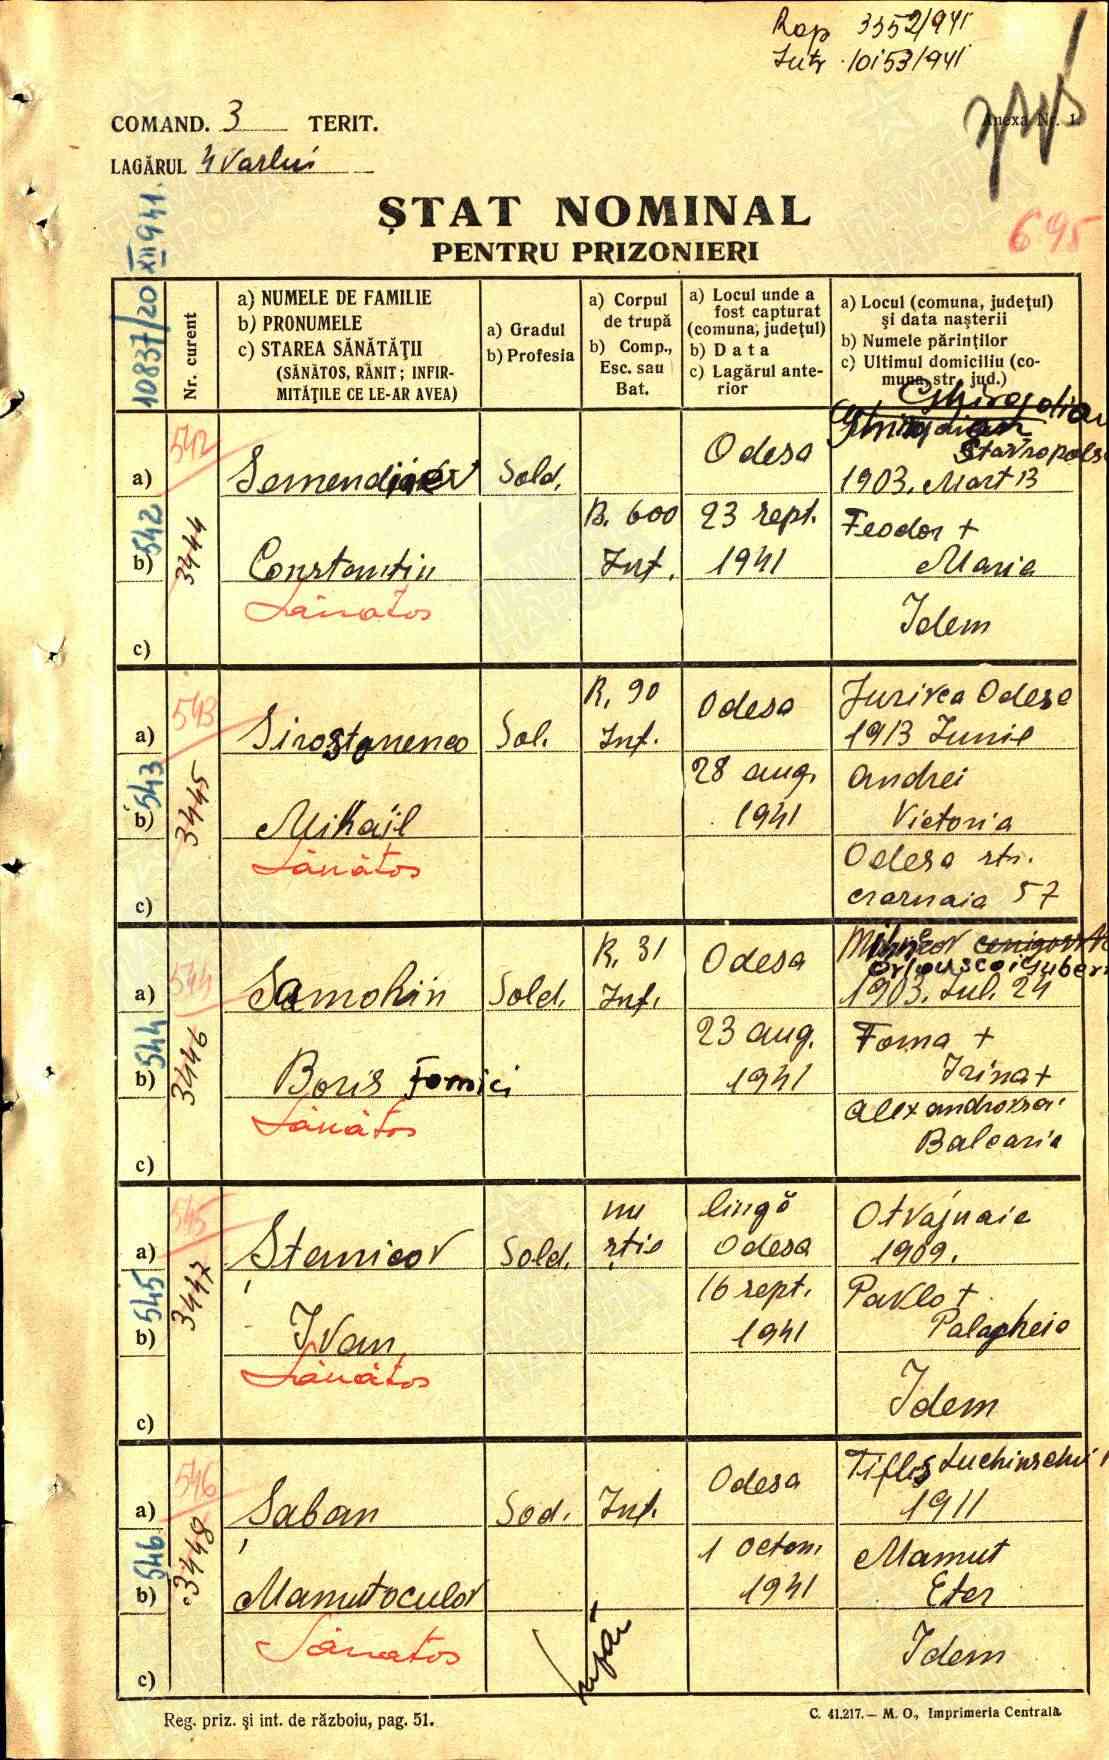 Rap 3352/941
Intr 10153/941
COMAND. 3 TERIT.
Anexa Nr. 1
LAGĂRUL 4 Vaslui
ȘTAT NOMINAL
PENTRU PRIZONIERI
695
10837/20 XII 941.
Nr. curent
a) NUMELE DE FAMILIE
b) PRONUMELE
c) STAREA SĂNĂTĂȚII
(SĂNĂTOS, RĂNIT; INFIR-
MITĂȚILE CE LE-AR AVEA)
a) Gradul
b) Profesia
a) Corpul
de trupă
b) Comp.,
Esc. sau
Bat.
a) Locul unde a
fost capturat
(comuna, județul)
b) Data
c) Lagărul ante-
rior
a) Locul (comuna, județul)
și data nașterii
b) Numele părinților
c) Ultimul domiciliu (co-
muna, str., jud.)
542
542
3444
a) Sold. Odesa Stavropols
1903. Mart 13
b) Constantin B. 600 Inf. 23 sept. 1941 Feodor +
Maria
Sănătos
c) Idem
543
543
3445
a) Sirostanenco Sol. R. 90 Inf. Odesa Odesa
1913 Iunie
b) Mihail 28 aug. 1941 Andrei
Victoria
Sănătos
c) Odesa str.
57
544
544
3446
a) Samohin Sold. R. 31 Inf. Odesa
1903. Iul. 24
b) Boris Fomici 23 aug. 1941 Foma +
Irina +
Sănătos
c) Balcaria
545
545
3447
a) Ștemicov Sold. nu știe lingă Odesa Otvajnaie
1909.
b) Ivan 16 sept. 1941 Pavlo +
Palagheio
Sănătos
c) Idem
546
546
3448
a) Șaban Sod. Inf. Odesa Tiflis
1911
b) Mamutoculov 1 octom. 1941 Mamut
Eter
Sănatos
c) Idem
Reg. priz. și int. de războiu, pag. 51.
C. 41.217. — M. O., Imprimeria Centrală.